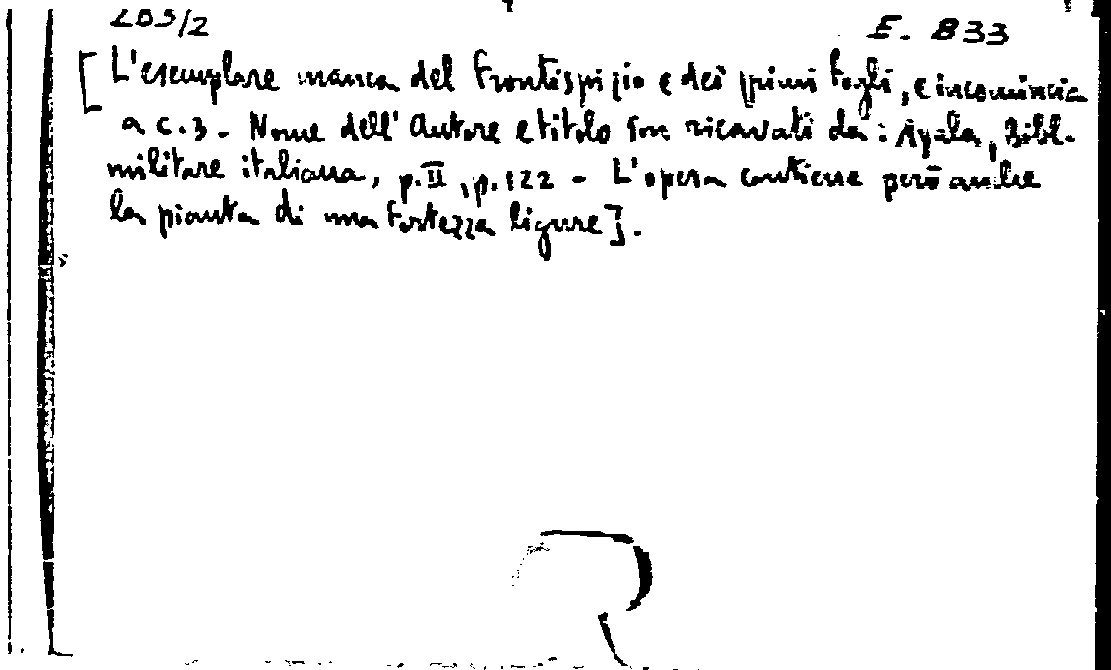 203/2 E. 833
[L'esemplare manca del frontispizio e dei primi fogli, e incomincia
a c.3 - Nome dell'Autore e titolo son ricavati da: Ayala, Bibl.
militare italiana, p. II, p. 122 - L'opera contiene però anche
la pianta di una fortezza ligure].